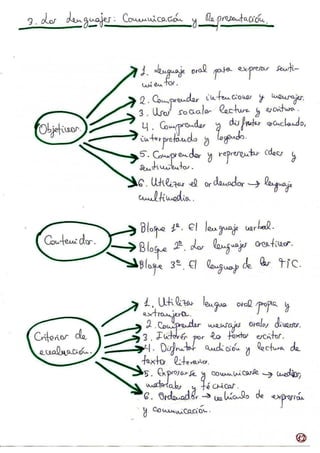 3. Los Lenguajes: Comunicación y Representación.
Objetivos.
1. Lenguaje oral para expresar senti-
mientos.
2. Comprender intenciones y mensajes.
3. Uso social lectura y escritura.
4. Comprender y disfrutar escuchando,
interpretando y leyendo.
5. Comprender y representar ideas y
sentimientos.
6. Utilizar el ordenador → lenguaje
multimedia.
Contenidos.
Bloque 1º. El lenguaje verbal.
Bloque 2º. Los lenguajes creativos.
Bloque 3º. El lenguaje de las TIC.
Criterios de
evaluación.
1. Utilizar lengua oral propia y
extranjera.
2. Comprender mensajes orales diversos.
3. Interés por los textos escritos.
4. Disfrutar audición y lectura de
textos literarios.
5. Expresarse y comunicarse → medios,
materiales y técnicas.
6. Ordenador → vehículo de expresión
y comunicación.